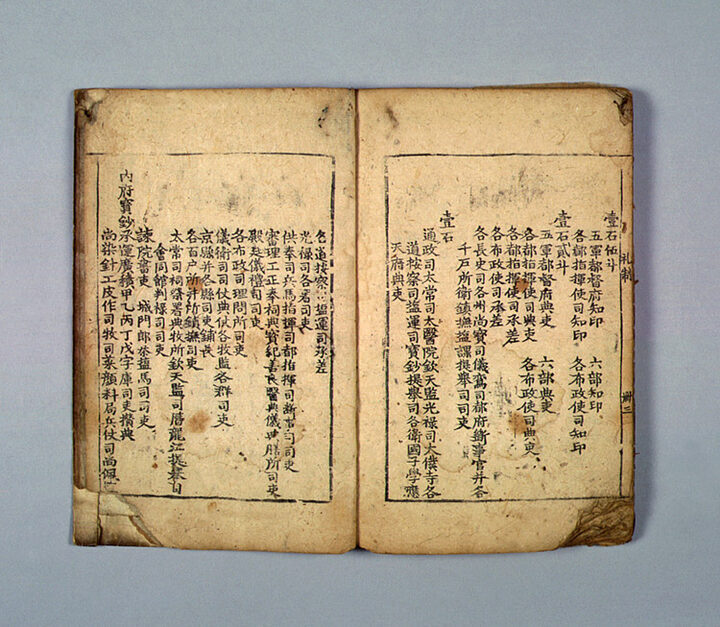 壹石伍斗
五軍都督府知印 六部知印
各都指揮使司知印 各布政使司知印
壹石貳斗
五軍都督府典吏 六部典吏
各都指揮使司典吏 各布政使司典吏
各都指揮使司承差
各布政使司承差
各長史司各州尚寶司儀鸞司都府斷事官并各
千戶所衛鎮撫鹽課提舉司司吏
壹石
通政司太常司太醫院欽天監光禄司太僕寺各
道按察司鹽運司寶鈔提舉司各衛國子學應
天府典吏
礼制
各道按察司鹽運司承差
光禄司各署司吏
供奉司兵馬指揮司都指揮司斷事司司吏
審理工正奉祠典寶紀善良醫典儀典膳所司吏
殿廷儀禮司司吏
各布政司理問所司吏
儀衛司司仗典仗各牧監各群司吏
京縣并各縣司吏鋪長
各百户所并所鎮撫司吏
太常司祠祭署典牧所欽天監司曆龍江提舉司
會同館判禄司司吏
諫院書吏 城門郎奉鹽馬司司吏
内府寶鈔承運廣積甲乙丙丁戊字庫司吏攢典
尚染針工皮作司牧司菜顔料局兵仗司尚佩